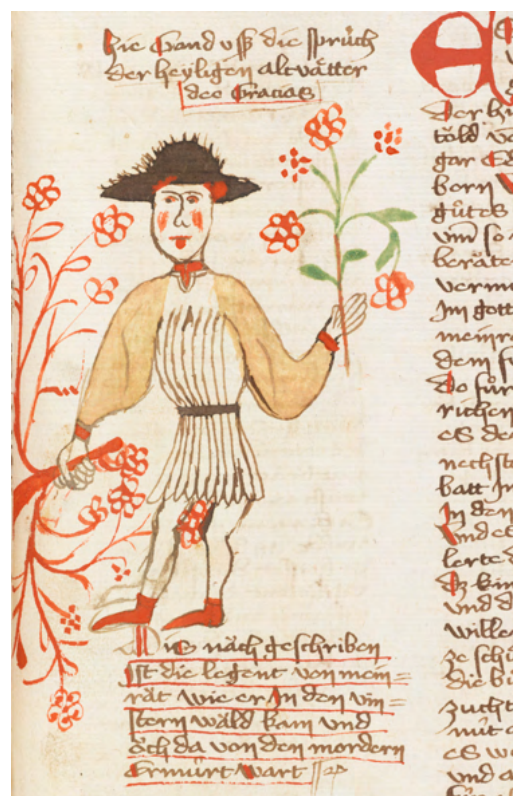 Hie Gand vsß die sprüch
der heyligen altvätter
deo Gracias
Dis näch geschriben
Ist die legent von mein=
rät wie er In den vin=
stern wäld kam vnd
öch da von den mordern
Ermürt wart
Der
töld
gar
born
gütes
vnd so
vermu
Im gott
meinra
dem
do für
richen
es de
nechste
batt In
In den
vnd es
lerte d
vnd d
wille
ze
die
zucht
nüt
es w
vnd a